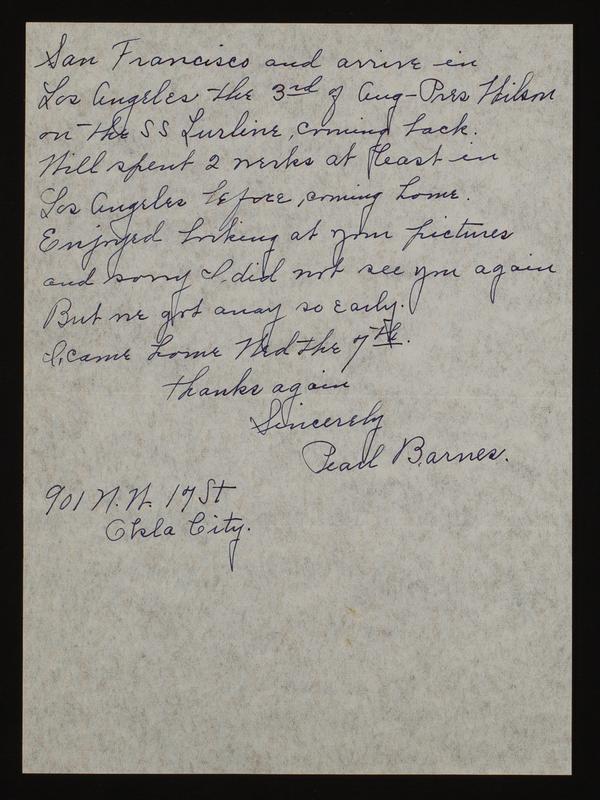 San Francisco and arrive in
Los Angeles the 3rd of Aug-Pres Wilson
on the SS Lurline, coming back.
Will spent 2 weeks at least in
Los Angeles before, coming home.
Enjoyed looking at your pictures
and sorry I did not see you again
But we got away so early.
I, came home Wed the 7th.
thanks again
Sincerely
Pearl Barnes.
901 N.W. 17 St
Okla City.